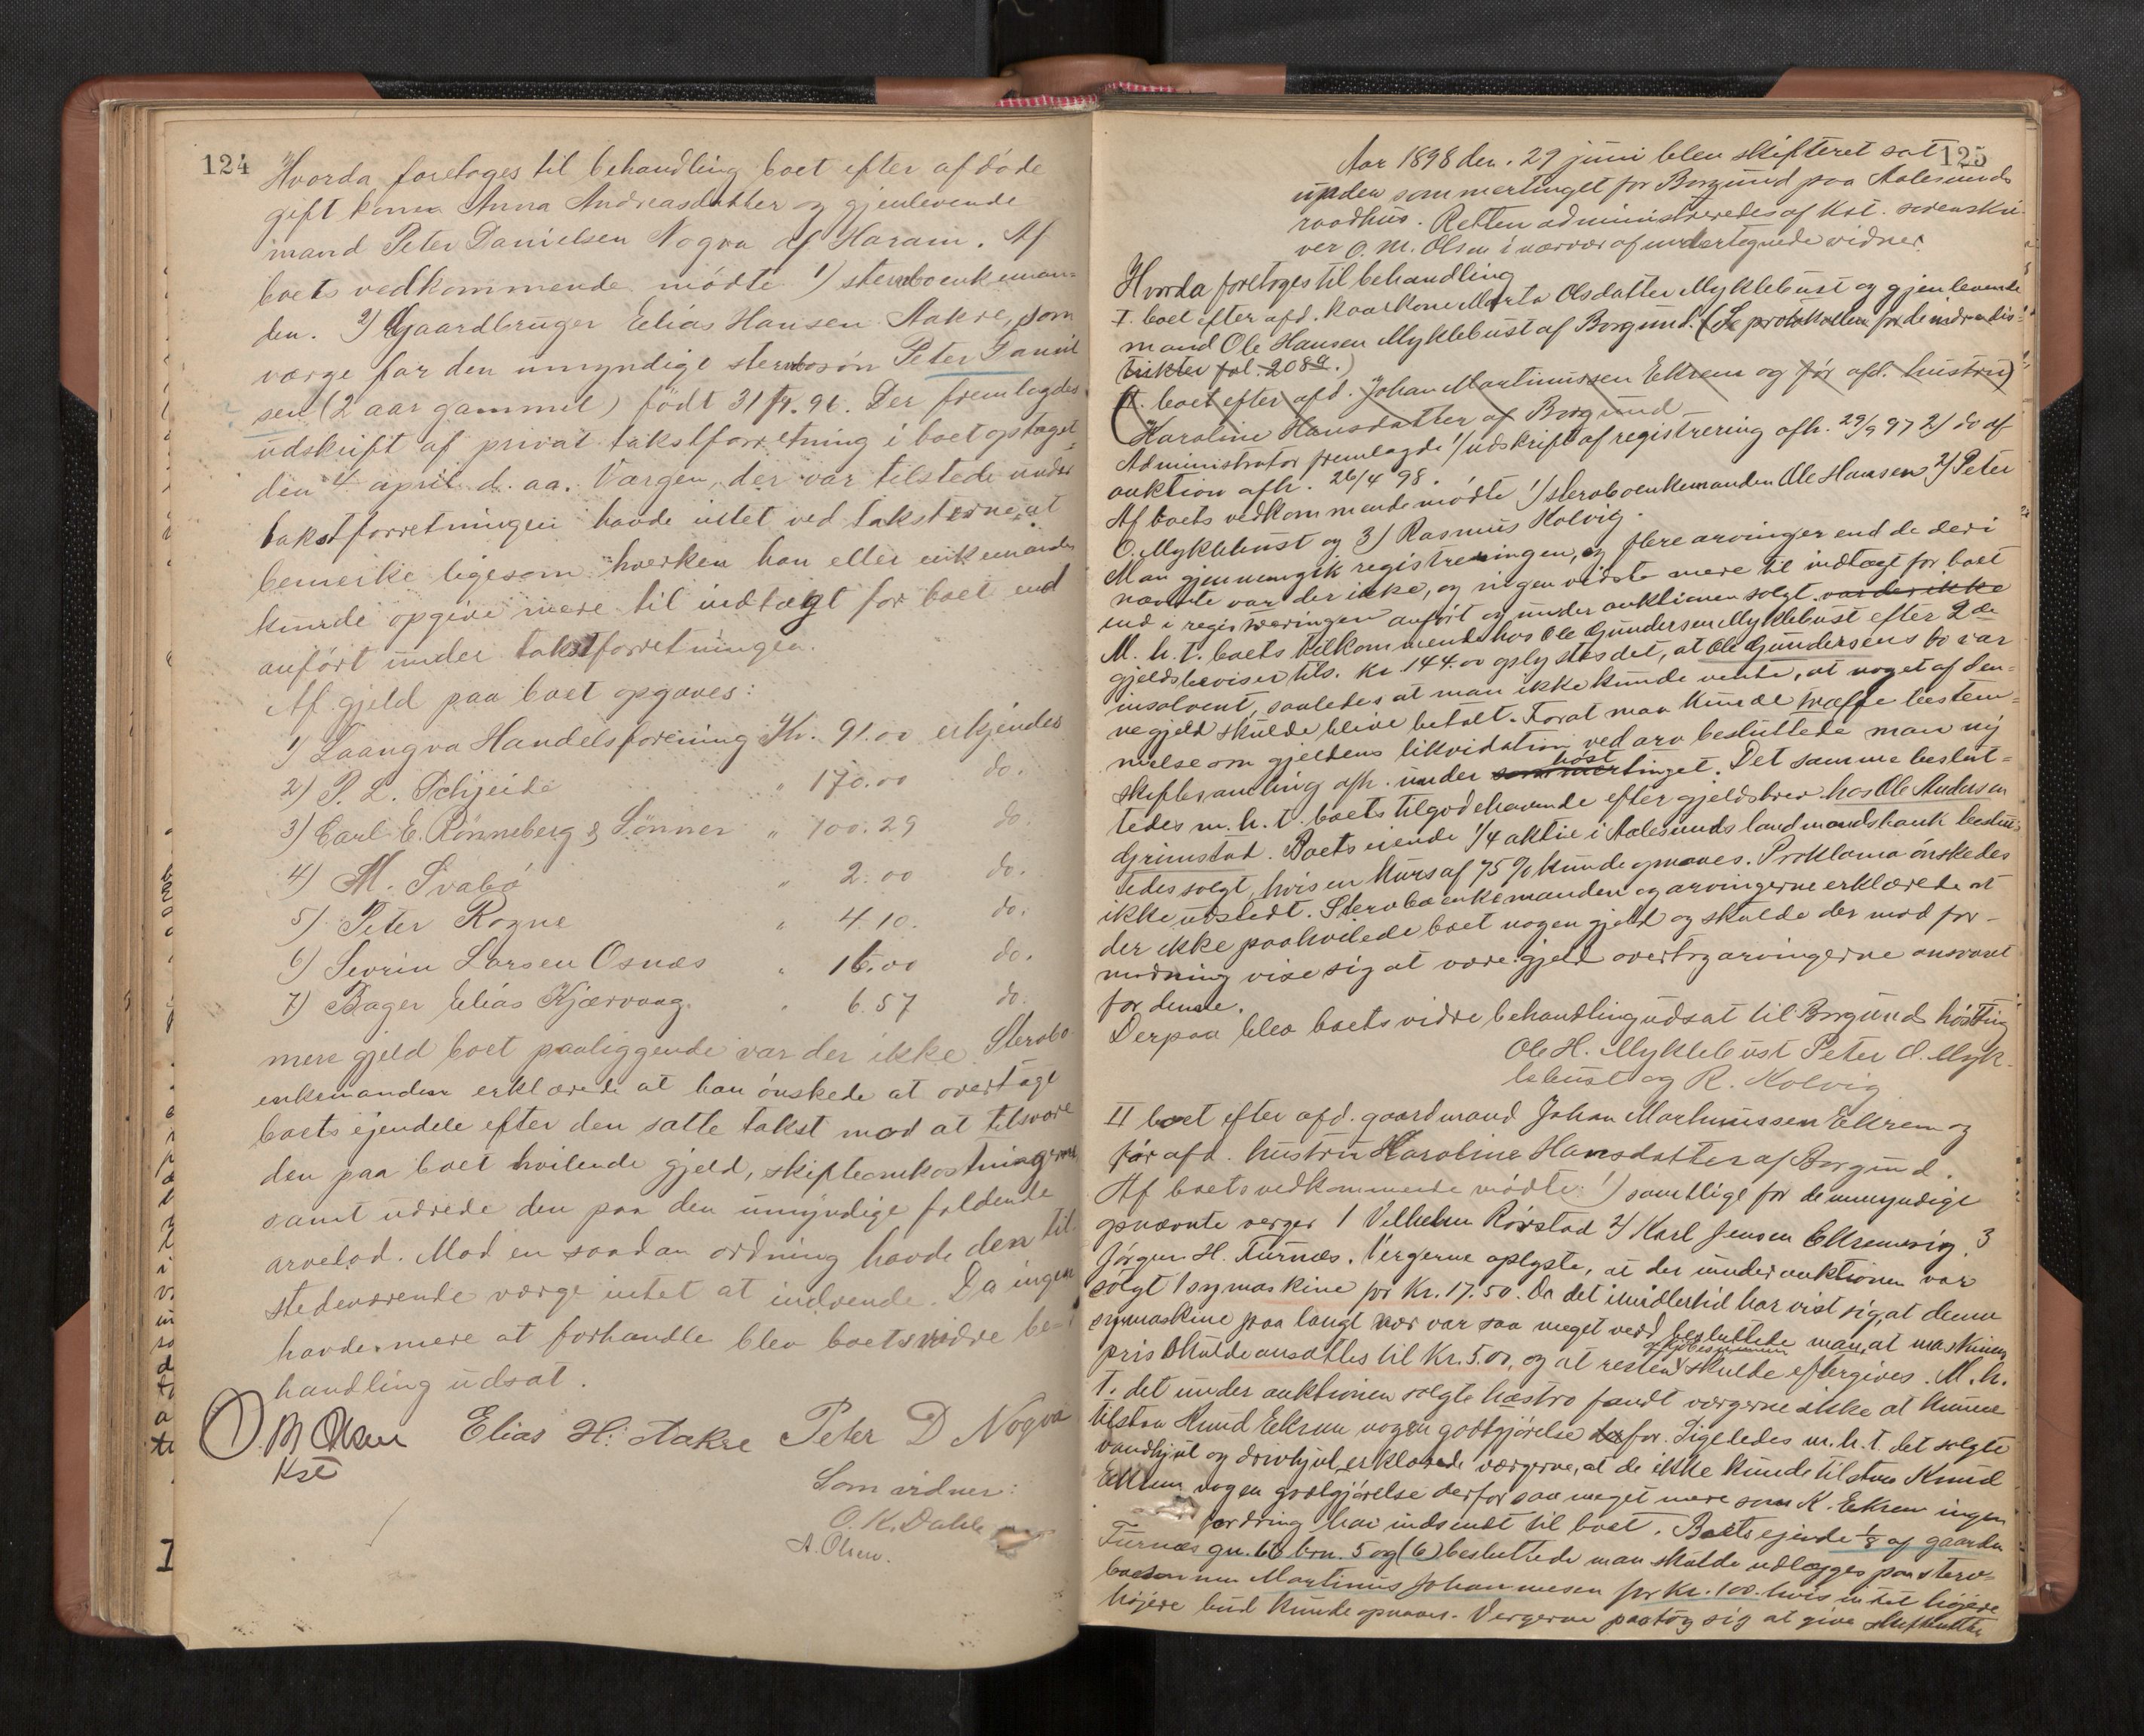 124
Hvorda foretoges til behandling boet efter afdøde
gift kone Anna Andreasdatter og gjenlevende
mand Peter Danielsen Nogva af Haram. Af
boets vedkommende mødte 1) sterboenkeman-
den. 2) Gaardbruger Elias Hansen Aakre, som
værge for den umyndige stervbosøn Peter Daniel
sen (2 aar gammel) født 31/ . 96. Der fremlagdes
udskrift af privat takstforretning i boet optaget
den 4 april d. aa. Værgen, der var tilstede under
takstforretningen havde intet ved taksterne at
bemerke ligesom hverken han eller enkemanden
kunde opgive mere til indtægt for boet end
anført under takstforretningen.
Af gjeld paa boet opgaves:
1) Laangva Handelsforening Kr. 91.00 erkjendes
2) P. L. Schjeide " 170.00 do.
3) Carl E. Rønneberg & Sønner " 100.29 do.
4) M. Svabø " 2.00 do.
5) Peter Rogne " 4.10. do.
6) Sevrin Larsen Osnæs " 16.00 do.
7) Bager Elias Kjærvaag " 6.57 do.
mere gjeld boet paaliggende var der ikke. Sterbo
enkemanden erklærede at han ønskede at overtage
boets ejendele efter den satte takst mod at tilsvare
den paa boet hvilende gjeld, skifteomkostningerne
samt udrede den paa den umyndige faldende
arvelod. Mod en saadan ordning havde den til-
stedeværende værge intet at indvende. Da ingen
havde mere at forhandle blev boets vidre be-
handling udsat.
O. M Olsen Elias H. Aakre Peter D Nogva
Kst
Som vidner:
O. K. Dahle
A. Olsen.
125
Aar 1898 den 29 juni blev skifteret sat
under sommertinget for Borgund paa Aalesunds
raadhus. Retten administreredes af kst. sorenskri-
ver O. M. Olsen i nærvær af undertegnede vidner.
Hvorda foretoges til behandling
I. boet efter afd. kaarkone Marta Olsdatter Myklebust og gjenlevende
mand Ole Hansen Myklebust af Borgund. (Se protokollen for de indre dis-
trikter fol. 208a.)
(II. boet efter afd. Johan Martinussen Ekrem og før afd. hustru)
Karoline Hansdatter af Borgund
Administrator fremlagde 1/ udskrift af registrering afh. 29/9 97 2/ do af
auktion afh. 26/4 98.
Af boets vedkommende mødte 1/ sterboenkemanden Ole Hansen 2/ Peter
O. Myklebust og 3/ Rasmus Kolvig.
Man gjennemgik registreringen, og flere arvinger end de deri
nævnte var der ikke, og ingen vidste mere til indtægt for boet
end i registreringen anført og under auktionen solgt var der ikke
M. h. t. boets tilkommende hos Ole Gundersen Myklebust efter 2de
gjeldsbeviser tils. kr 144.00 oplystes det, at Ole Gundersens bo var
insolvent, saaledes at man ikke kunde vente, at noget af den-
ne gjeld skulde blive betalt. Forat man kunde træffe bestem-
melse om gjeldens likvidation ved arv besluttede man ny
skiftesamling afh. under sommertinget. Det samme beslut-
høst
tedes m. h. t. boets tilgodehavende efter gjeldsbrev hos Ole Andersen
Grimstad. Boets eiende 1/4 aktie i Aalesunds landmandsbank beslut-
tedes solgt, hvis en kurs af 75 % kunde opnaaes. Proklama ønskedes
ikke udstedt. Sterboenkemanden og arvingerne erklærede at
der ikke paahvilede boet nogen gjeld og skulde der mod for-
modning vise sig at være gjeld overtog arvingerne ansvaret
for denne.
Derpaa blev boets vidre behandling udsat til Borgund høstting
Ole H. Myklebust Peter O. Myk-
lebust og R. Kolvig
II boet efter afd. gaardmand Johan Martinussen Ekrem og
før afd. hustru Karoline Hansdatter af Borgund.
Af boets vedkommende mødte 1) samtlige for de umyndige
opnævnte verger 1 Vilhelm Rørstad 2/ Karl Jensen Ekremsvig. 3
Jørgen H. Furnæs. Vergerne oplyste, at der under auktionen var
solgt 1 symaskine for Kr. 17.50. Da det imidlertid har vist sig, at denne
symaskine paa langt nær var saa meget verd besluttede man, at maskinens
pris skulde ansættes til Kr. 5.00, og at resten skulde eftergives. M. h.
af kjøbesummen
t. det under auktionen solgte hæstro fandt værgerne ikke at kunne
tilstaa Knud Ekrem nogen godtgjørelse derfor. Ligeledes m. h. t. det solgte
vandhjul og drivhjul erklærede værgerne, at de ikke kunde tilstaa Knud
Ekrem nogen godtgjørelse derfor saa meget mere som K. Ekrem ingen
fordring har indsendt til boet. Boets ejende 1/8 af gaarden
Furnæs gn. 66 brn. 5 og (6) besluttede man skulde udlægges paa sterv-
bosønnen Martinus Johannesen for Kr. 100. hvis intet høiere
høiere bud kunde opnaaes. Vergerne paatog sig at give